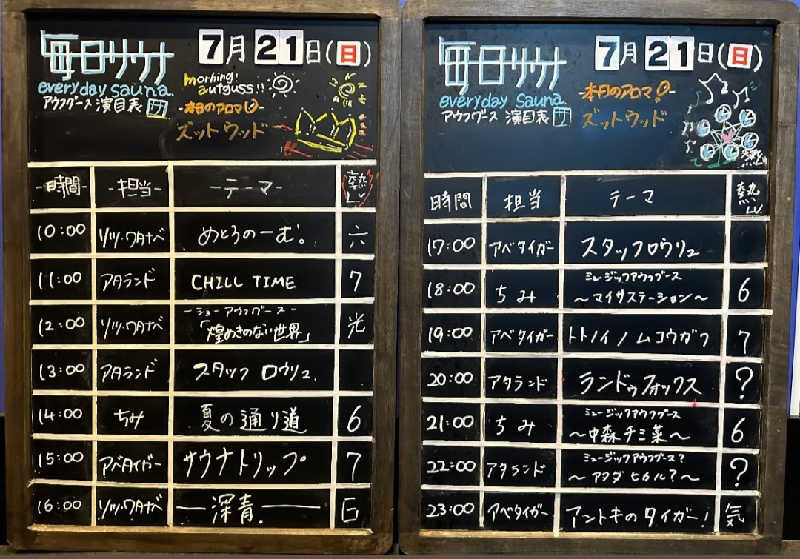 毎日サウナ 7月21日(日)
everyday sauna.
アウフグース 演目表
morning!
autguss!!
-本日のアロマ-
ズットウッド
-時間- -担当- -テーマ- 熱
10:00 ソッソ・ワタナベ めとろのーむ。 六
11:00 アタランド CHILL TIME 7
-ショーアウフグース-
12:00 ソッソ・ワタナベ 「煌めきのない世界」 光
13:00 アタランド スタッフロウリュ
14:00 ちみ 夏の通り道 6
15:00 アベタイガー サウナトリップ 7
16:00 ソッソ・ワタナベ —深青.—
毎日サウナ 7月21日(日)
everyday sauna.
アウフグース 演目表
-本日のアロマ!-
ズットウッド
時間 担当 テーマ 熱
17:00 アベタイガー スタッフロウリュ
ミュージックアウフグース
18:00 ちみ 〜マイサステーション〜 6
19:00 アベタイガー トトノイノムコウガワ 7
20:00 アタランド ランドゥフォックス ?
ミュージックアウフグース
21:00 ちみ 〜中森チミ菜〜 6
ミュージックアウフグース?
22:00 アタランド 〜アタダヒカル?〜 ?
23:00 アベタイガー アントキのタイガー! 気